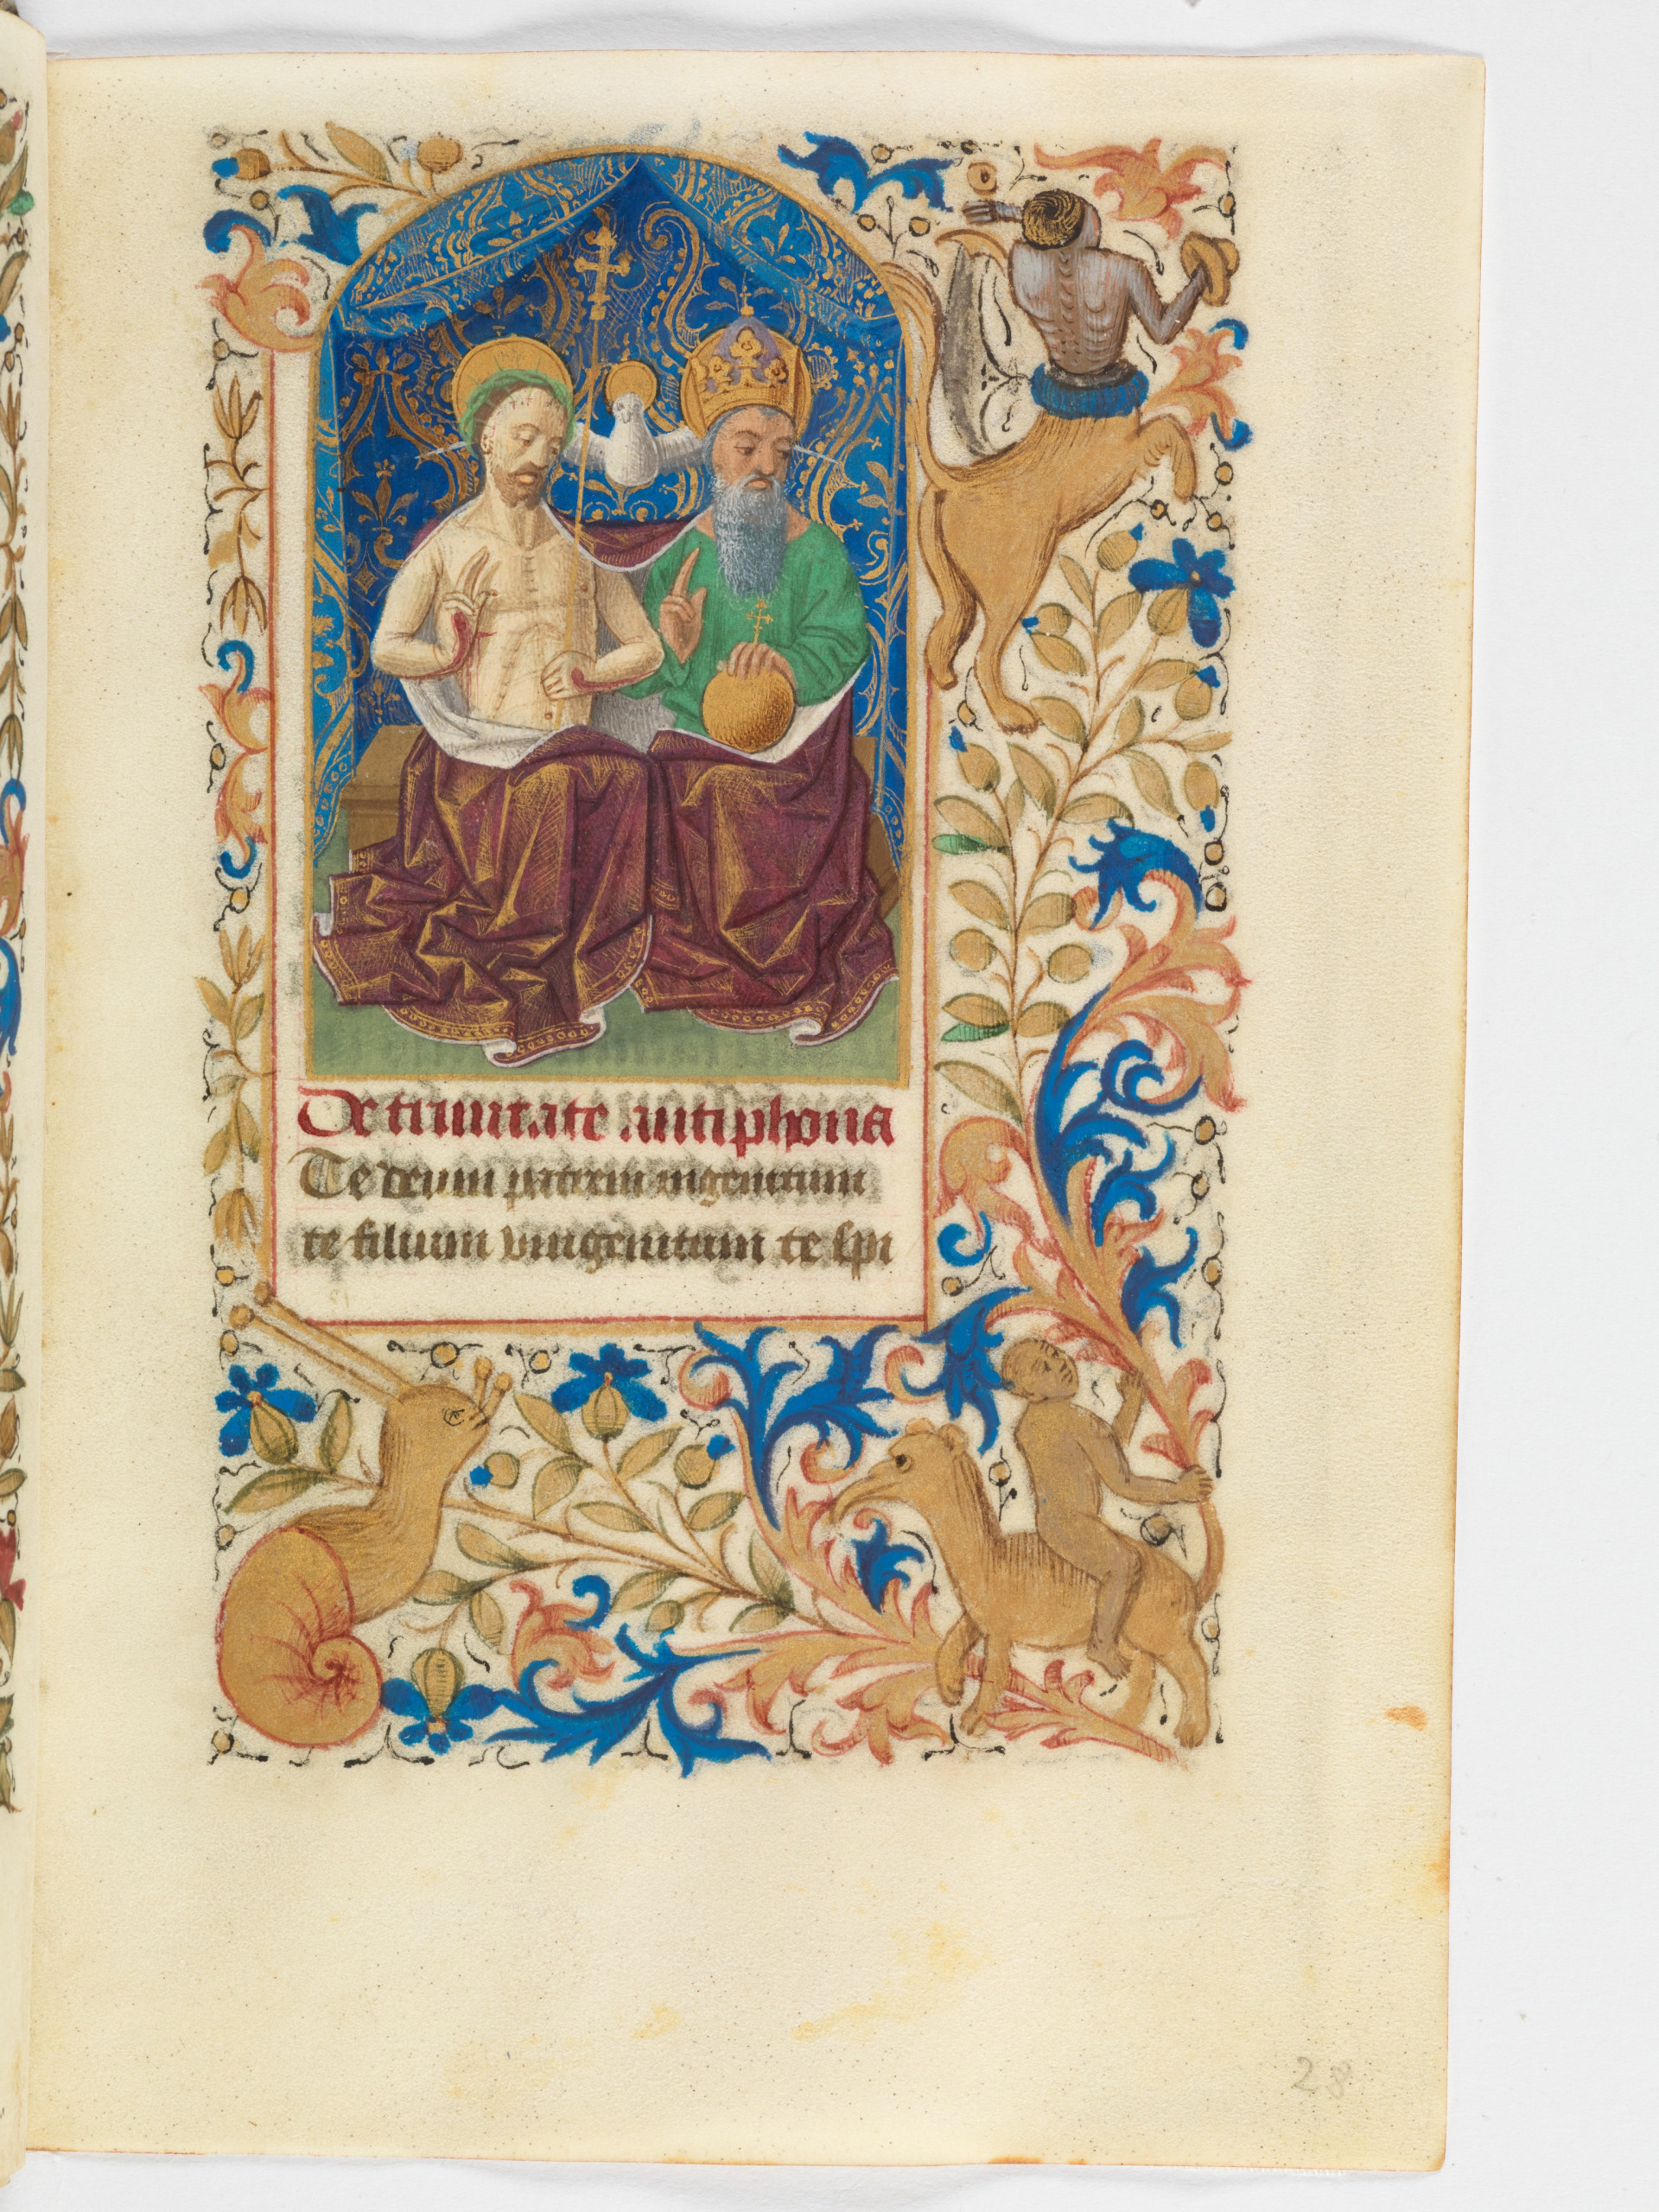 De trinitate antiphona
Te deum patrem ingenitum
te filium vnigenitum te spi
28